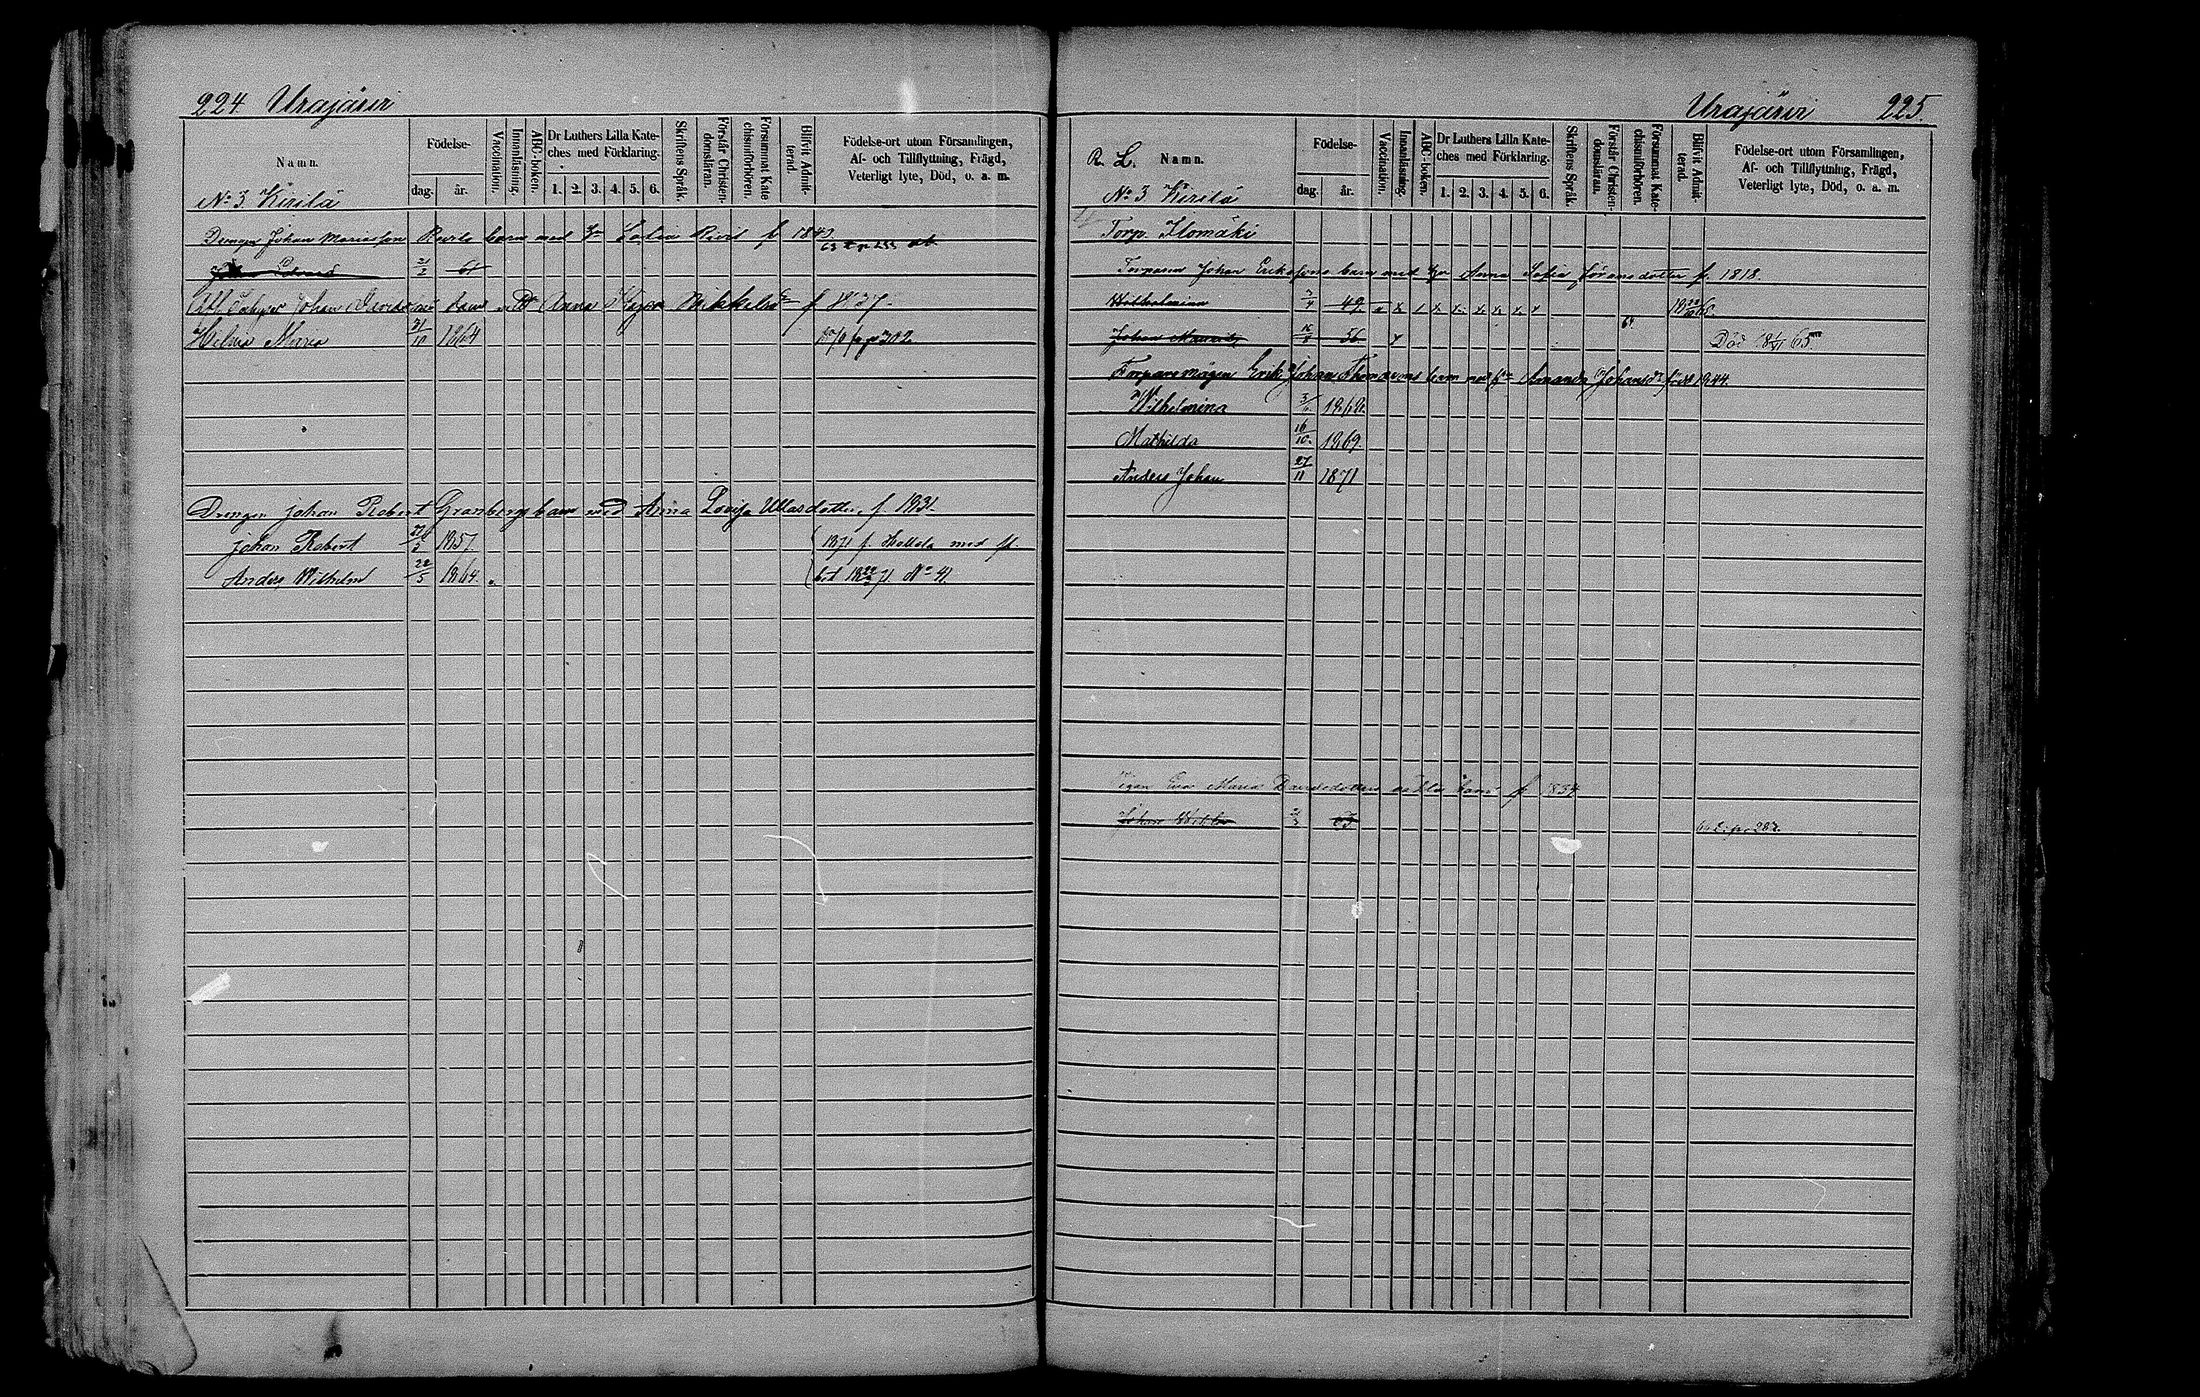 224 Urajärvi
Namn.
Födelse-
dag. år.
Vaccination.
Innanläsning.
ABC-boken.
Dr Luthers Lilla Kate-
ches med Förklaring.
1. 2. 3. 4. 5. 6.
Skriftens Språk.
Förstår Christen-
domsläran.
Försummat Kate
chismiförhören.
Blifvit Admit-
terad.
Födelse-ort utom Församlingen,
Af- och Tillflyttning, Frägd,
Veterligt lyte, Död, o. a. m.
No 3 Kirilä
Drengen Johan barn med f 1843
21/2 61
Johan Anna Kajsa f 1827.
Helma Maria 31/10 1864 302
Drengen Johan Robert Granbergs barn med Anna Lovisa Ullasdotter, f 1831.
Johan Robert 1857. 1871 f. Hollola med fl.
Anders Wilhelm 22/5 1864. bet 18 71 No 41.
Urajärvi 225.
R. L. Namn.
Födelse-
dag. år.
Vaccination.
Innanläsning.
ABC-boken.
Dr Luthers Lilla Kate-
ches med Förklaring.
1. 2. 3. 4. 5. 6.
Skriftens Språk.
Förstår Christen-
domsläran.
Försummat Kate-
chismiförhören.
Blifvit Admit-
terad.
Födelse-ort utom Församlingen,
Af- och Tillflyttning, Frägd,
Veterligt lyte, Död, o. a. m.
No 3. Kirilä
Torp. Ilomäki
Torparen Johan Erikssons barn med Anna Sofia f. 1818.
Wilhelmina 49.
Johan 56. Död 65
Torparemågen Erik Johan Thomassons barn med Amanda 1844.
Wilhelmina 1868.
Mathilda 16/10. 1869.
Anders Johan 27/11 1871
Pigan Eva Maria Davidsdotters oäkta barn f. 1834
Johan 63